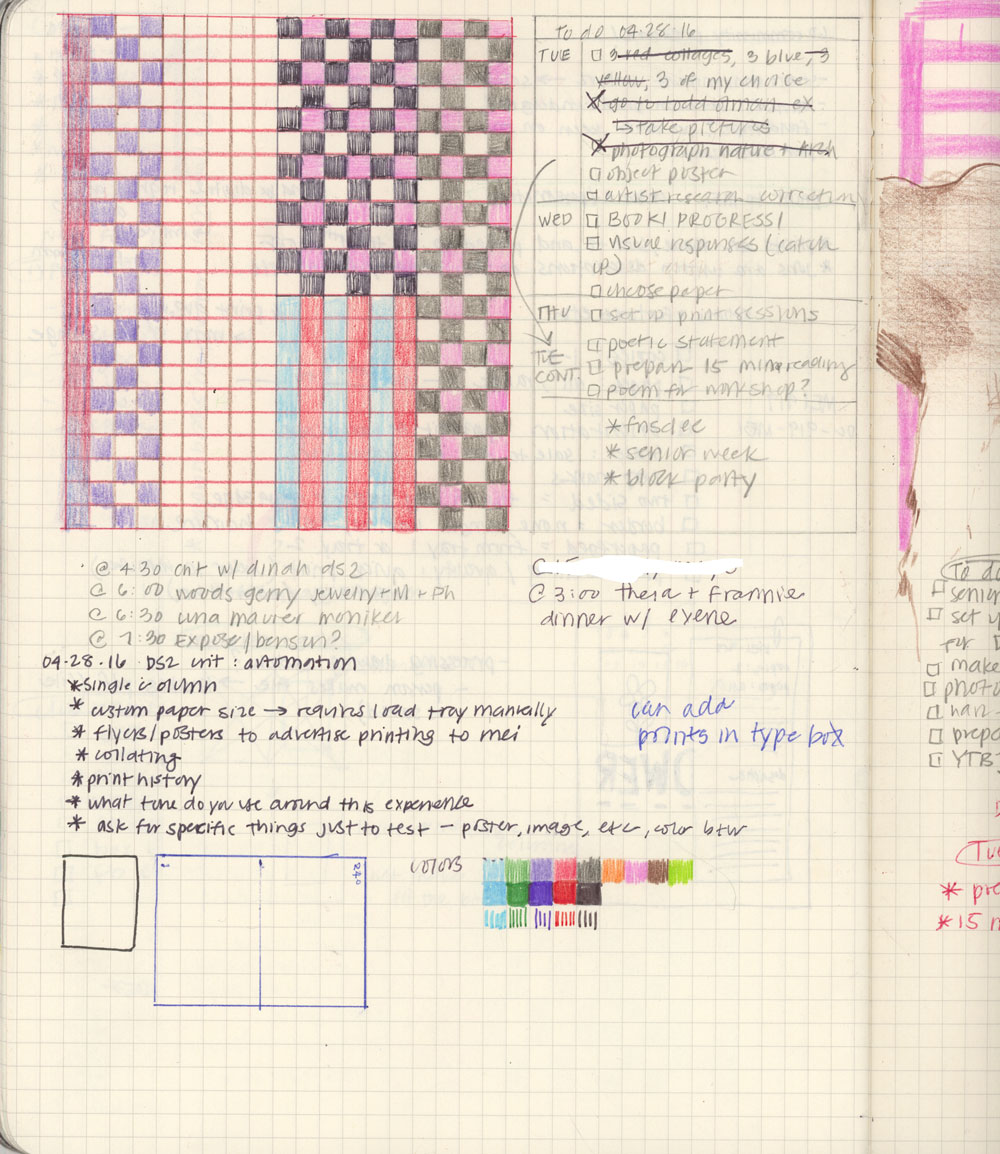 to do 04·28·16
TUE 3 red collages, 3 blue, 3
yellow, 3 of my choice
go to ladd
take pictures
photograph nature +
object poster
artist research correcting
WED BOOK! PROGRESS!
visual responses (catch
up)
choose paper
THU set up print sessions
TUE CONT. poetic statement
prepare 15 min reading
poem for workshop?
*
* senior week
* block party
@ 4:30 crit w/ dinah ds2
@ 6:00 woods gerry jewelry + M + Ph
@ 6:30 una maurer moniker
@ 7:30 Expose/benson?
@ 3:00 thea + Frannie
dinner w/ eyene
04·28·16 DS2 crit : automation
* single column
* custom paper size → requires load tray manually
* flyers/posters to advertise printing to mei
* collating
* print history
* what tone do you use around this experience
* ask for specific things just to test - poster, image, etc, color btw
can add
points in type box
colors
To do
senior
set u
for
make
photo
han-
prepa
YTB
Tu
* pre
* 15 m